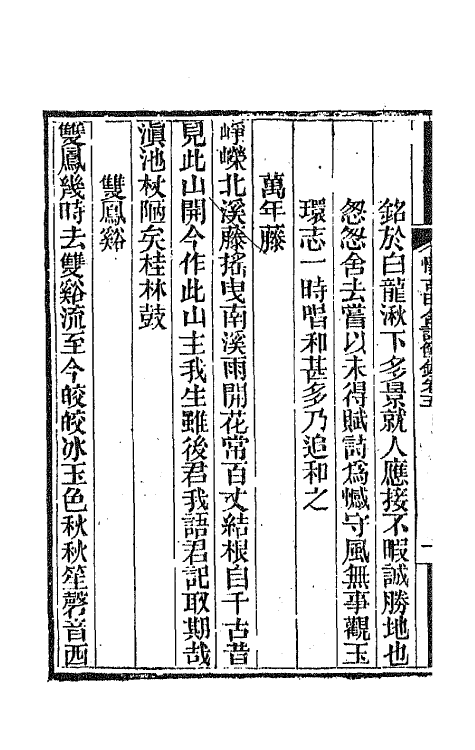 銘於白龍湫下多景就人應接不暇誠勝地也
怱怱舍去嘗以未得賦詩為憾守風無事觀玉
環志一時唱和甚多乃追和之
萬年藤
崢嶸北溪藤搖曳南溪雨開花常百丈結根自千古昔
見此山開今作此山主我生雖後君我語君記取期哉
滇池杖陋矣桂林鼓
雙鳳谿
雙鳳幾時去雙谿流至今皎皎冰玉色秋秋笙磬音西